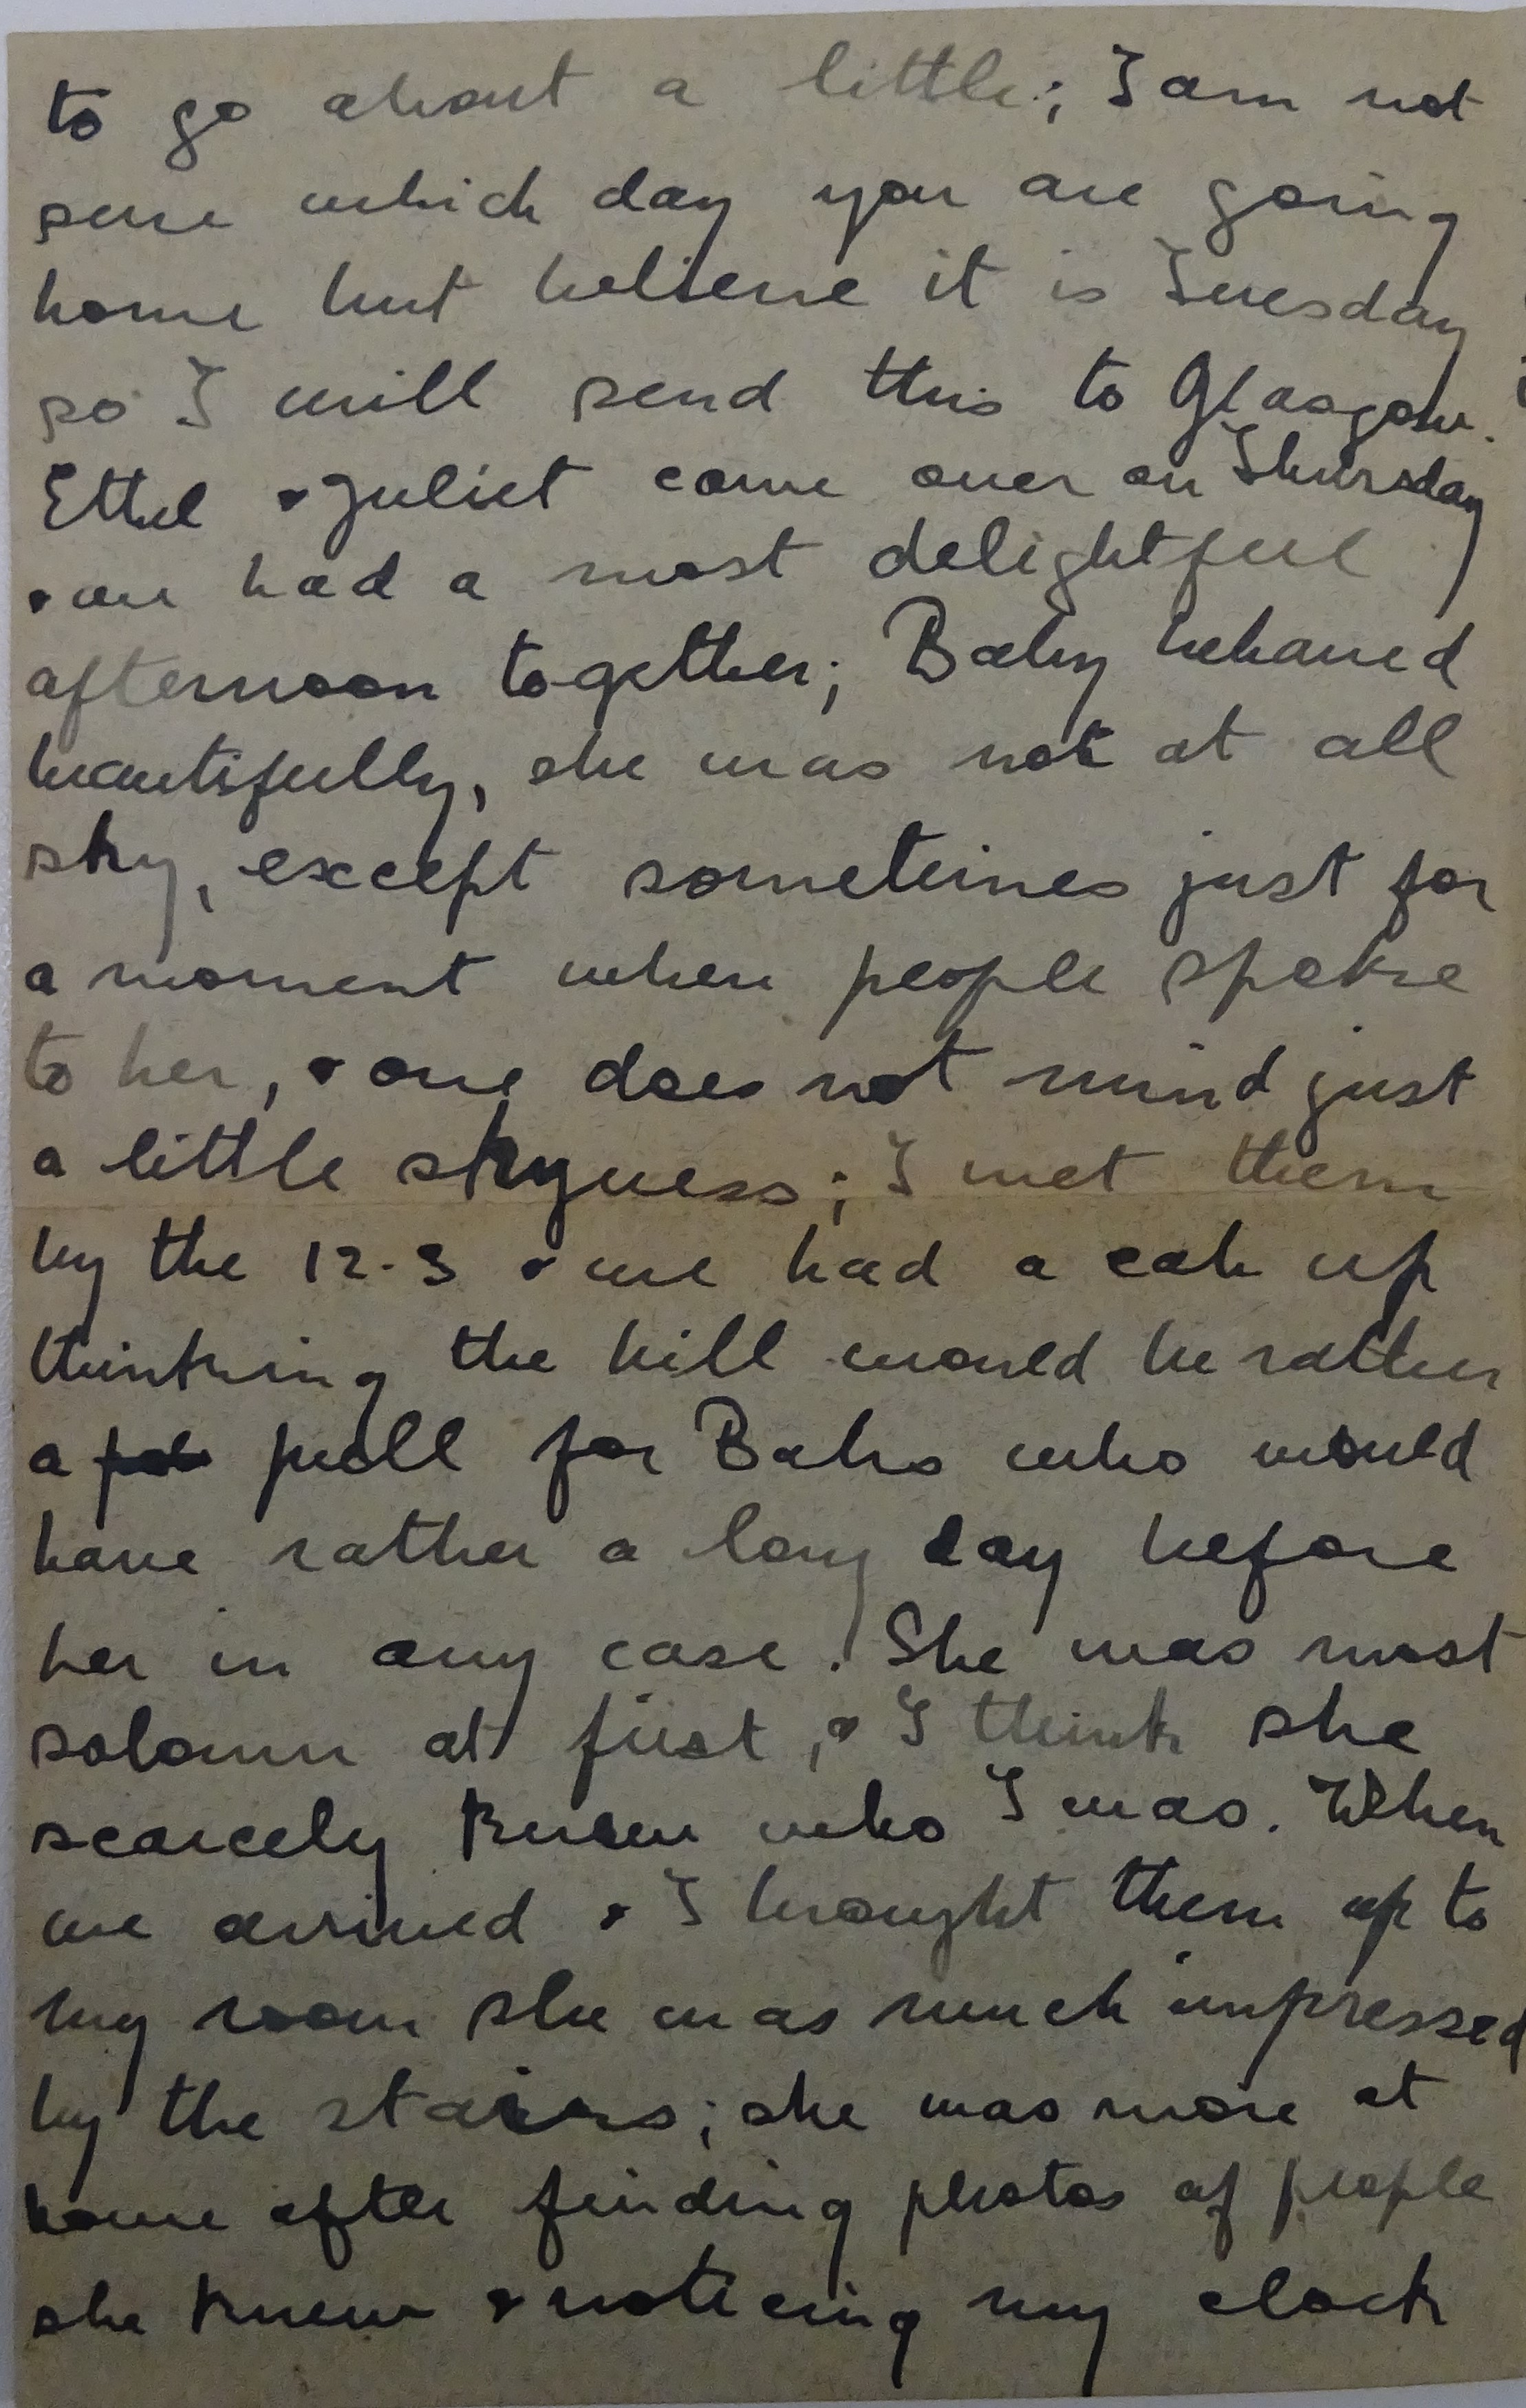 to go about a little; I am not
sure which day you are going
home but believe it is Tuesday
so I will send this to Glasgow.
Ethel & Juliet came over on Thursday
& we had a most delightful
afternoon together; Baby behaved
beautifully, she was not at all
shy, except sometimes just for
a moment when people spoke
to her, & one does not mind just
a little shyness; I met them
by the 12-3 & we had a cab up
thinking the hill would be rather
a pull for Babs who would
have rather a long day before
her in any case. She was most
solomn at first, & I think she
scarcely knew who I was. When
we arrived & I brought them up to
my room she was much impressed
by the stairs; she was more at
home after finding photos of people
she knew & noticing my clock